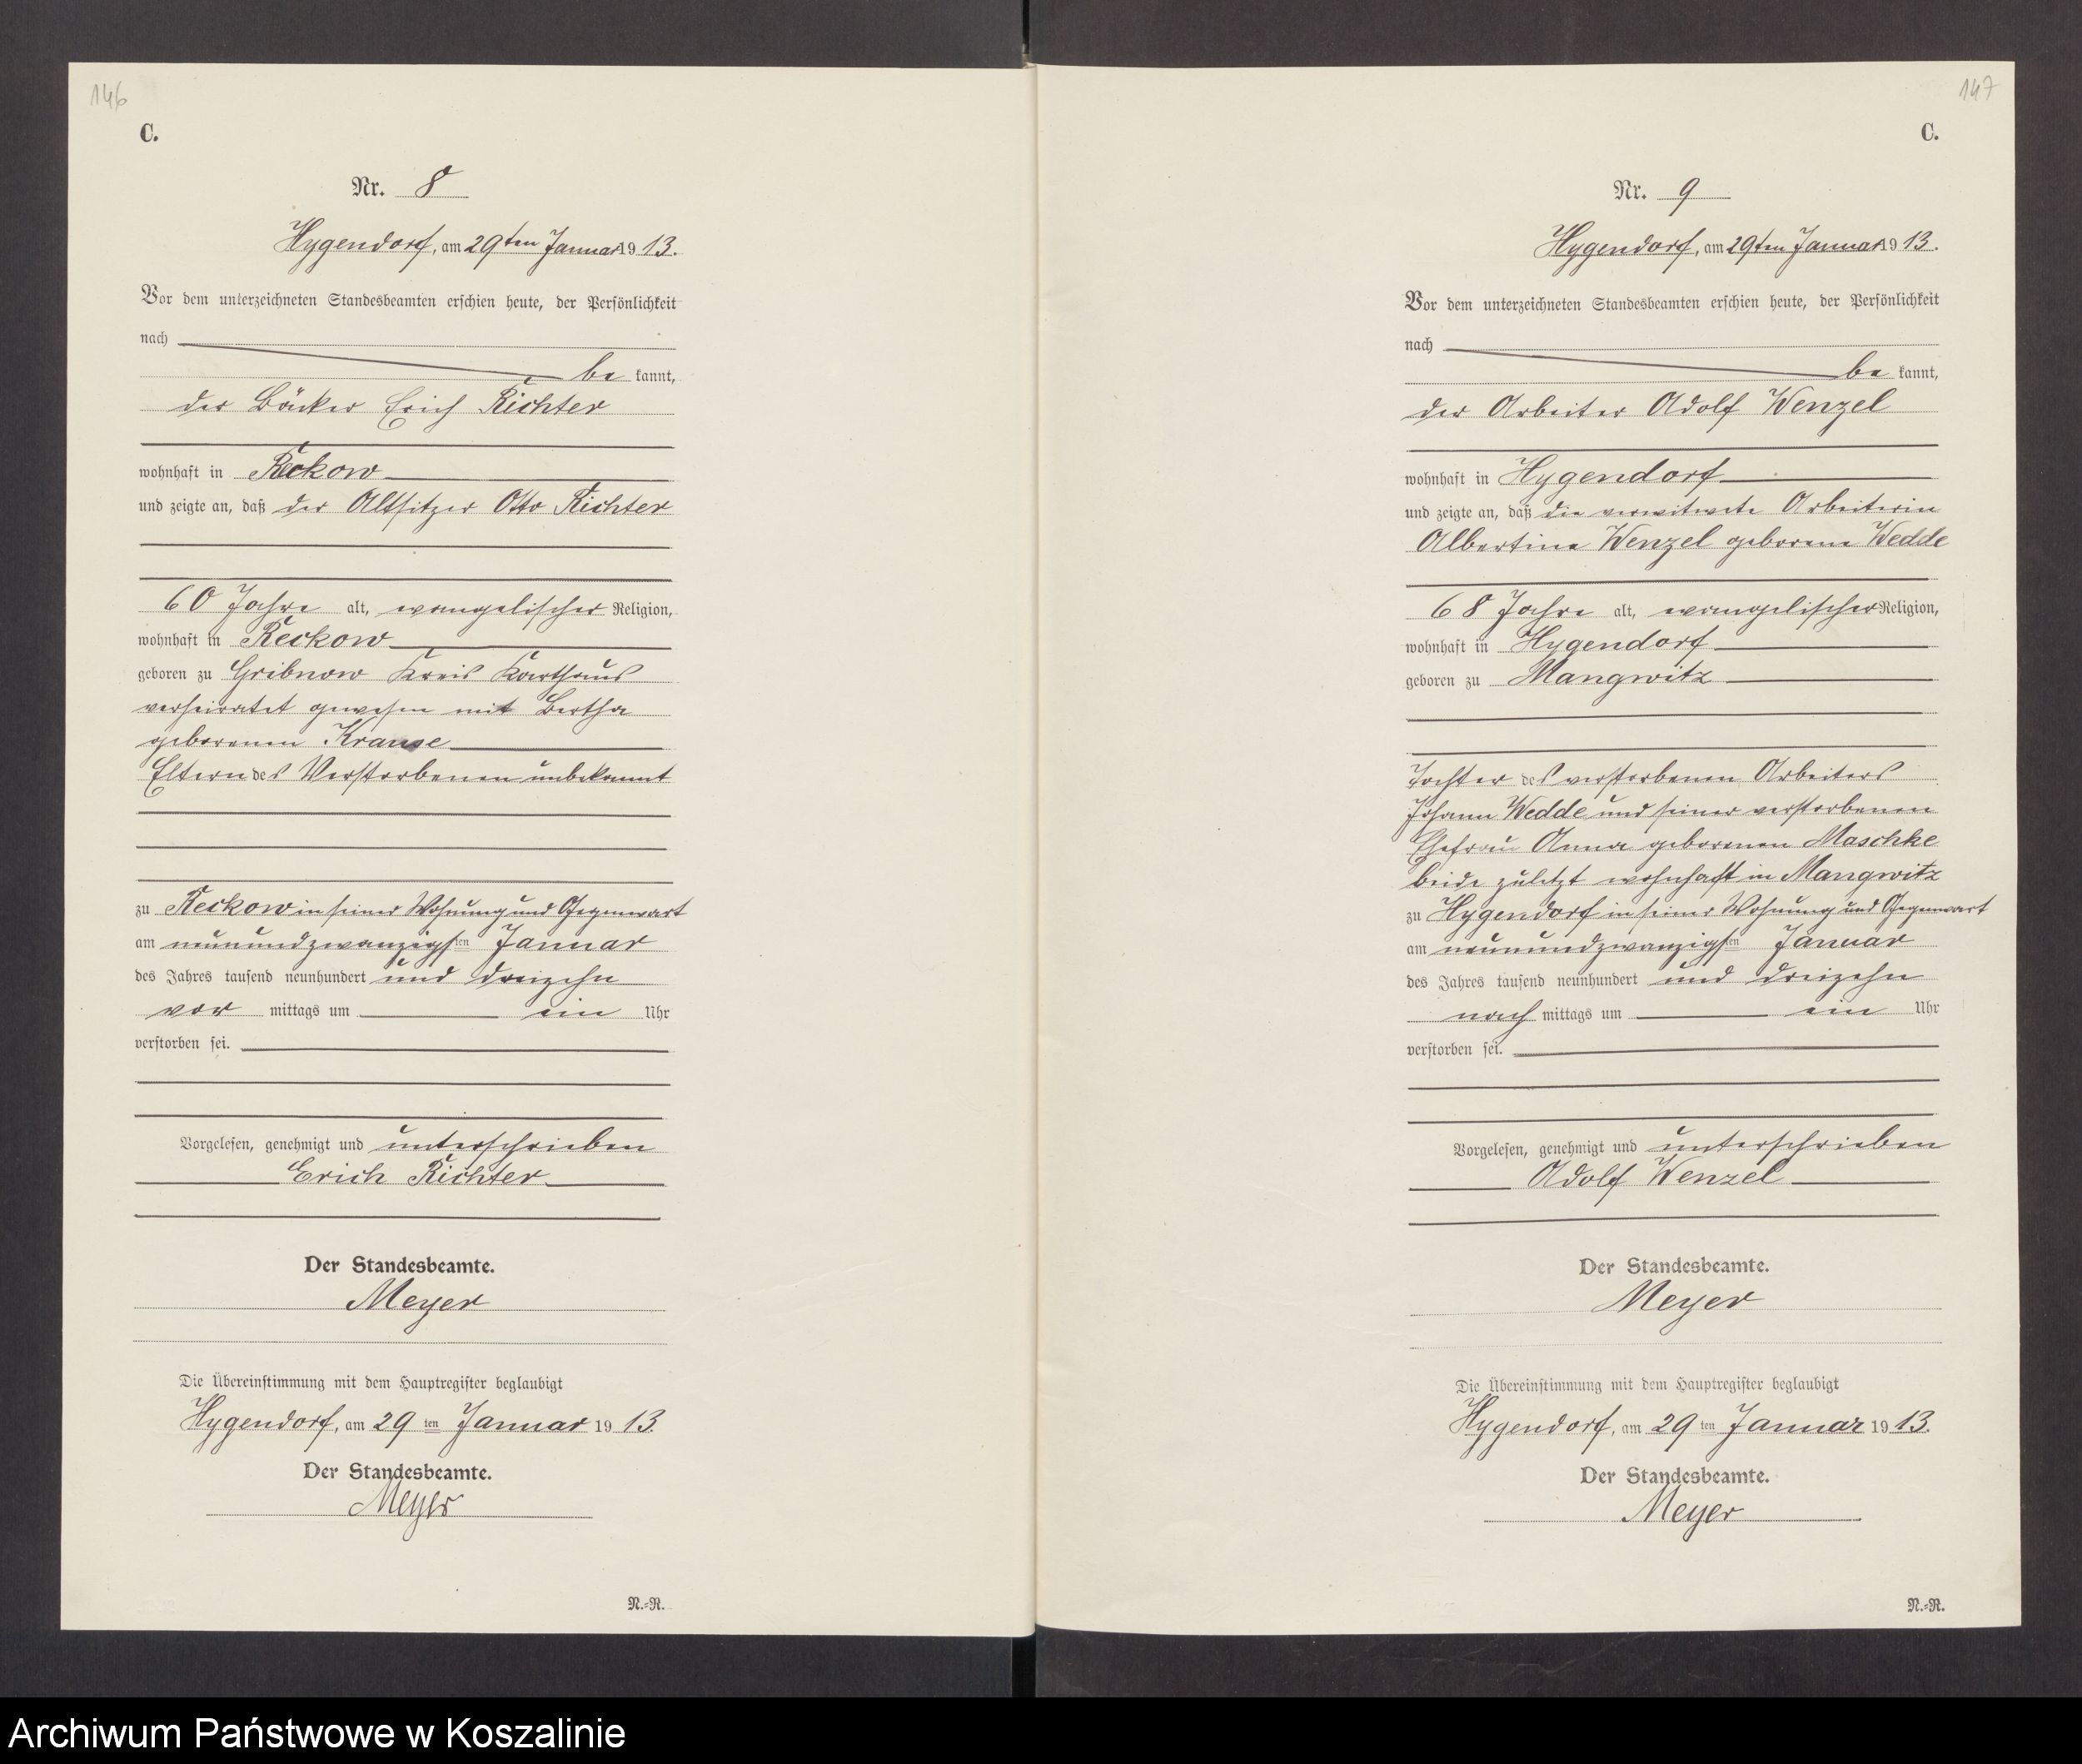 146
C.
Nr. 8
Hygendorf, am 29ten Januar 1913.
Vor dem unterzeichneten Standesbeamten erschien heute, der Persönlichkeit
nach
be kannt,
der Bäcker Erich Richter
wohnhaft in Reckow
und zeigte an, daß der Altsitzer Otto Richter
60 Jahre alt, evangelischer Religion,
wohnhaft in Reckow
geboren zu Gribnow Kreis Karthaus
verheiratet gewesen mit Bertha
geborenen Krause
Eltern des Verstorbenen unbekannt
zu Reckow in seiner Wohnung und Gegenwart
am neunundzwanzigsten Januar
des Jahres tausend neunhundert und dreizehn
vor mittags um ein Uhr
verstorben sei.
Vorgelesen, genehmigt und unterschrieben
Erich Richter
Der Standesbeamte.
Meyer
Die Übereinstimmung mit dem Hauptregister beglaubigt
Hygendorf, am 29 ten Januar 1913.
Der Standesbeamte.
Meyer
N.=R.
147
C.
Nr. 9
Hygendorf, am 29ten Januar 1913.
Vor dem unterzeichneten Standesbeamten erschien heute, der Persönlichkeit
nach
be kannt,
der Arbeiter Adolf Wenzel
wohnhaft in Hygendorf
und zeigte an, daß die verwitwete Arbeiterin
Albertine Wenzel geborene Wedde
68 Jahre alt, evangelischer Religion,
wohnhaft in Hygendorf
geboren zu Mangwitz
Tochter des verstorbenen Arbeiters
Johann Wedde und seiner verstorbenen
Ehefrau Anna geborenen Maschke
beide zuletzt wohnhaft in Mangwitz
zu Hygendorf in seiner Wohnung und Gegenwart
am neunundzwanzigsten Januar
des Jahres tausend neunhundert und dreizehn
nach mittags um ein Uhr
verstorben sei.
Vorgelesen, genehmigt und unterschrieben
Adolf Wenzel
Der Standesbeamte.
Meyer
Die Übereinstimmung mit dem Hauptregister beglaubigt
Hygendorf, am 29 ten Januar 1913.
Der Standesbeamte.
Meyer
N.=R.
Archiwum Państwowe w Koszalinie